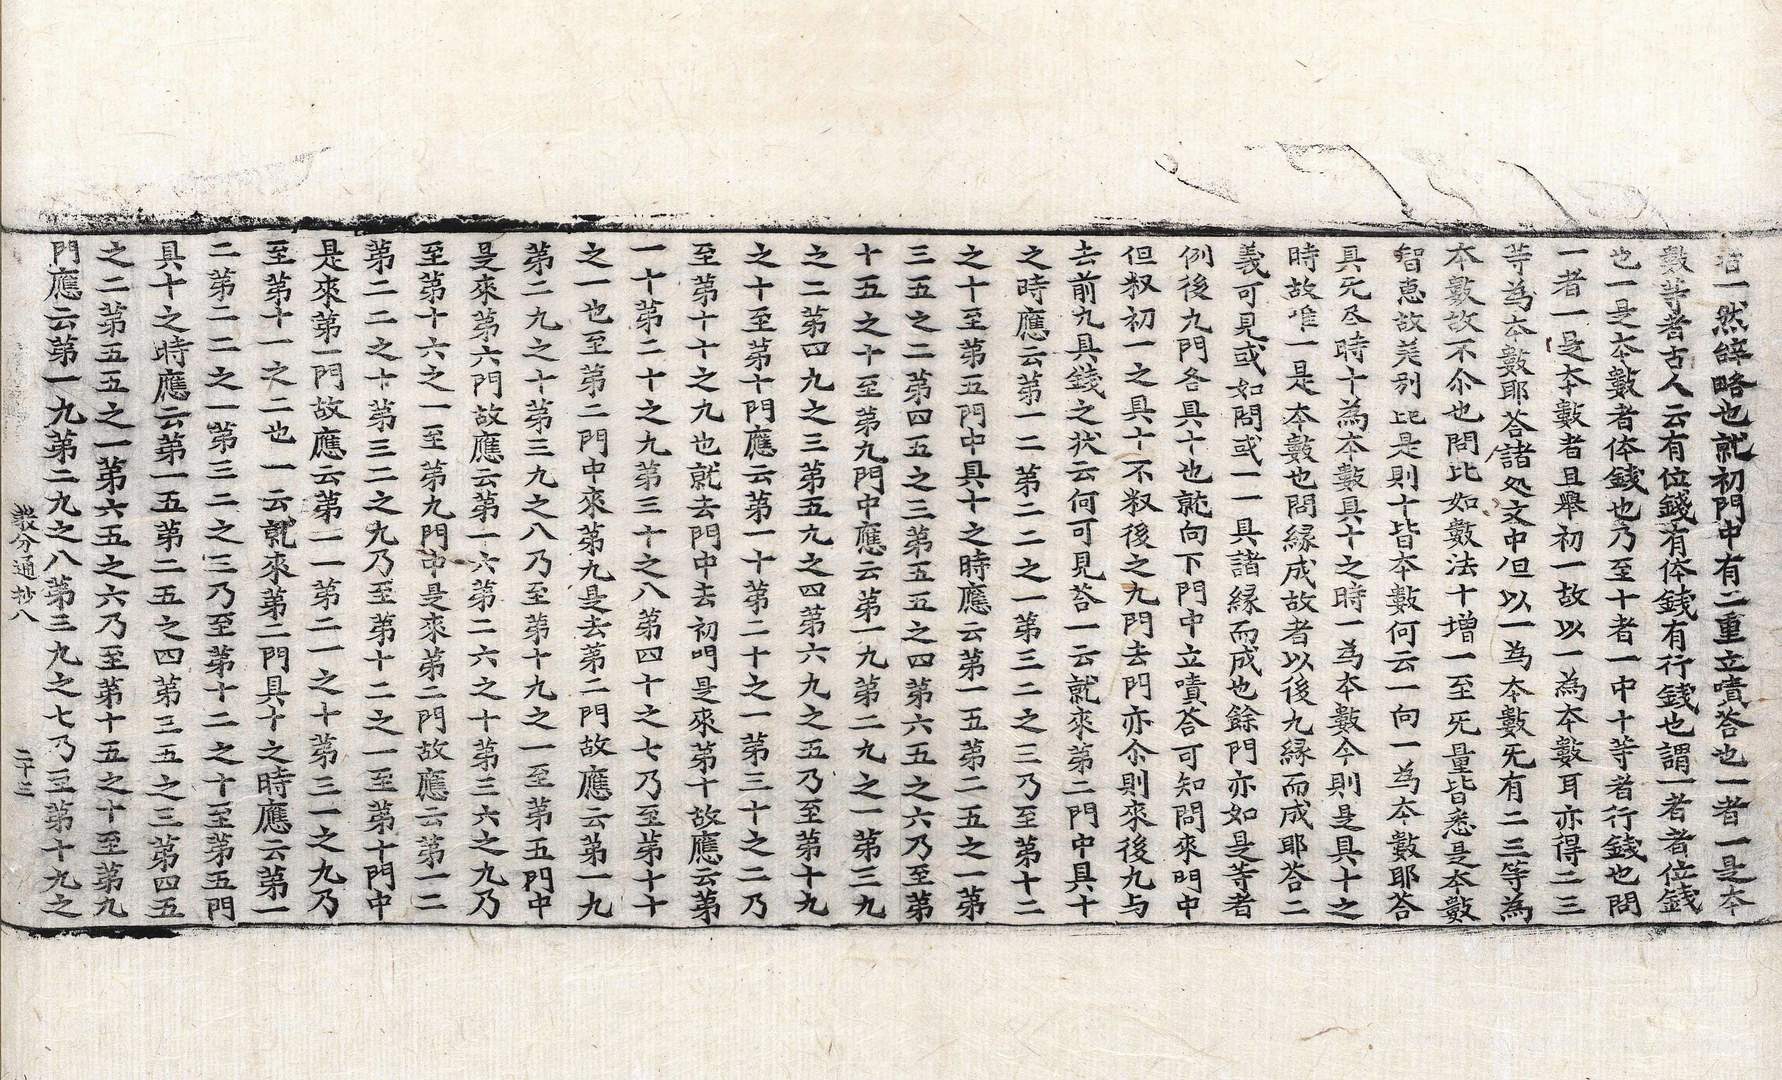 者一然辞略也就初門中有二重立嘖荅也一者一是本
數等者古人云有位錢有体錢有行錢也謂一者者位錢
也一是本數者体錢也乃至十者一中十等者行錢也問
一者一是本數者且舉初一故以一為本數耳亦得二三
等為本數耶荅諸処文中但以一為本數旡有二三等為
本數故不尒也問比如數法十增一至旡量皆悉是本數
智恵故羙别比是則十皆本數何云一向一為本數耶荅
具旡尽時十為本數具十之時一為本數今則是具十之
時故唯一是本數也問縁成故者以後九縁而成耶荅二
義可見或如問或一一具諸縁而成也餘門亦如是等者
例後九門各具十也就向下門中立嘖荅可知問來門中
但叙初一之具十不叙後之九門去門亦尒則來後九与
去前九具錢之状云何可見荅一云就來第二門中具十
之時應云第一二第二二之一第三二之三乃至第十二
之十至第五門中具十之時應云第一五第二五之一第
三五之二第四五之三第五五之四第六五之六乃至第
十五之十至第九門中應云第一九第二九之一第三九
之二第四九之三第五九之四第六九之五乃至第十九
之十至第十門應云第一十第二十之一第三十之二乃
至第十十之九也就去門中去初門是來第十故應云第
一十第二十之九第三十之八第四十之七乃至第十十
之一也至第二門中來第九是去第二門故應云第一九
第二九之十第三九之八乃至第十九之一至第五門中
是來第六門故應云第一六第二六之十第三六之九乃
至第十六之一至第九門中是來第二門故應云第一二
第二二之十第三二之九乃至第十二之一至第十門中
是來第一門故應云第一一第二一之十第三一之九乃
至第十一之二也一云就來第二門具十之時應云第一
二第二二之一第三二之三乃至第十二之十至第五門
具十之時應云第一五第二五之四第三五之三第四五
之二第五五之一第六五之六乃至第十五之十至第九
門應云第一九第二九之八第三九之七乃至第十九之
敎分通抄八 二十三